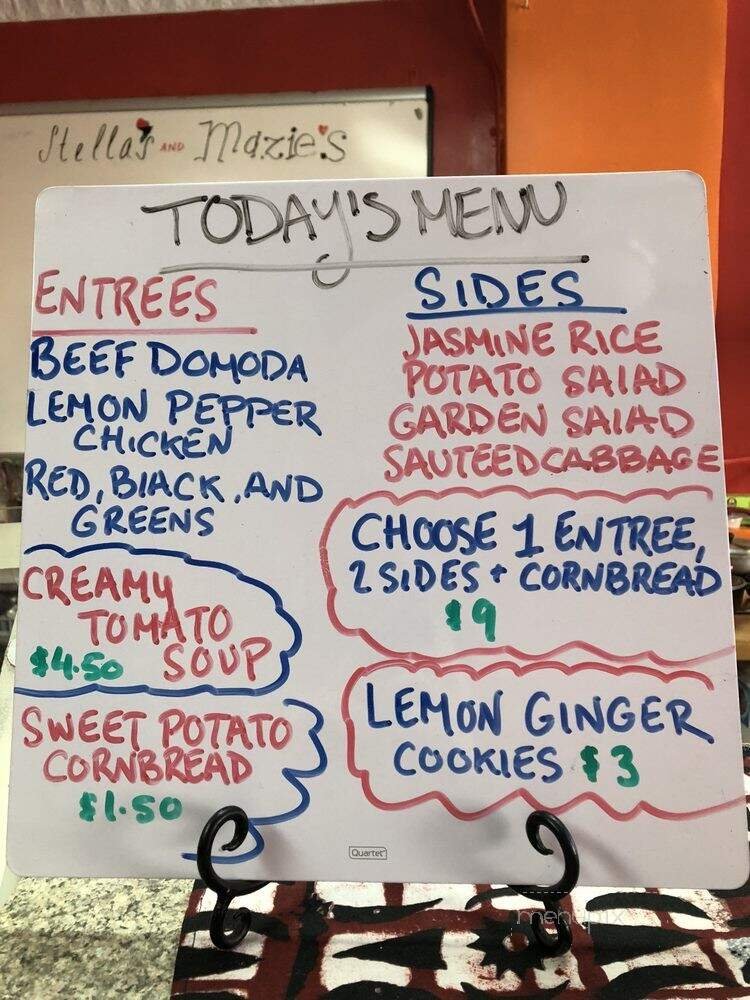 Stella's AND Mazie's
TODAY'S MENU
ENTREES
BEEF DOMODA
LEMON PEPPER
CHICKEN
RED, BLACK, AND
GREENS
CREAMY
TOMATO
$4.50 SOUP
SWEET POTATO
CORNBREAD
$1.50
SIDES
JASMINE RICE
POTATO SALAD
GARDEN SALAD
SAUTEED CABBAGE
CHOOSE 1 ENTREE,
2 SIDES + CORNBREAD
$9
LEMON GINGER
COOKIES $3
Quartet
menupix